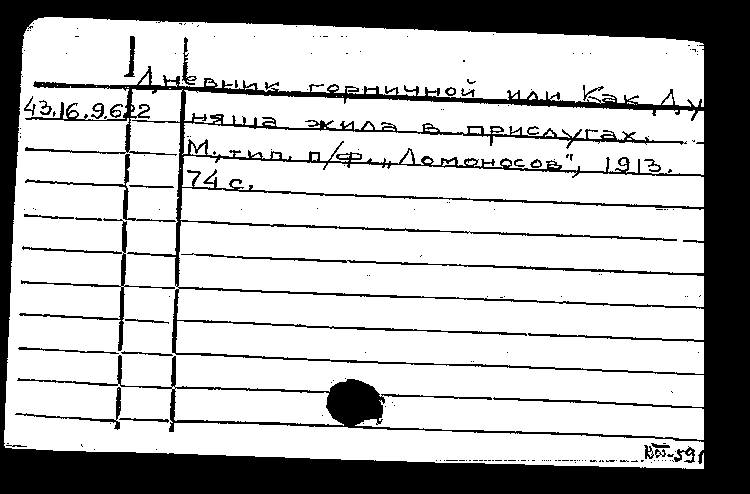 Дневник горничной или Как Ду
43.16.9.622 няша жила в прислугах.
М., тип. п/ф. „Ломоносов", 1913.
74 с.